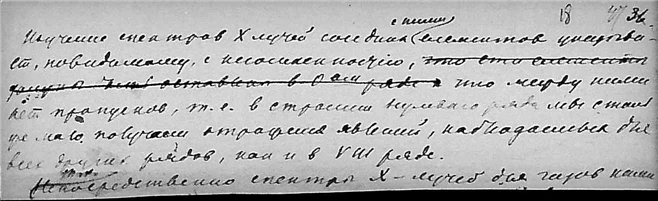 18 36
с ними
Изучение спектров X лучей соседних элементов указывает,
повидимому, с несомненностью, что эти элементы
должны быть оставлены в 0 ряде и что между ними
нет пропусков, т.е. в строении нулевого ряда мы
не получаем отражения явлений, наблюдаемых для
всех других рядов, как и в VIII ряде.
Непосредственно спектры X-лучей для газов нами